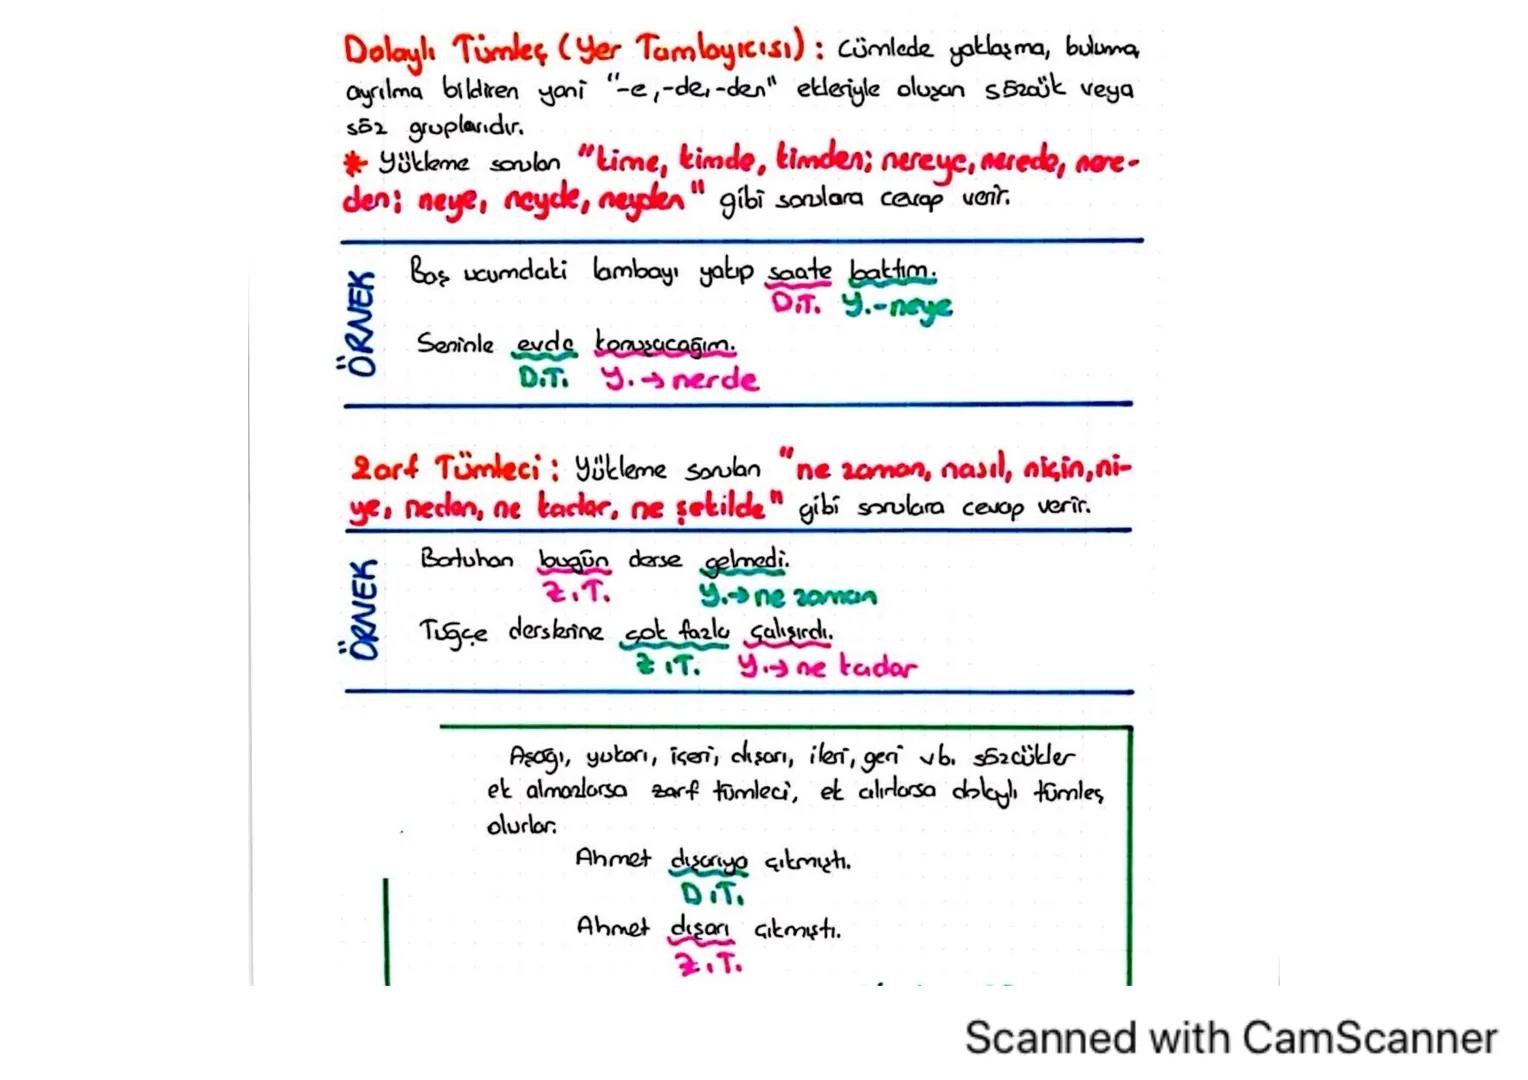 Dolaylı Tümleç (Yer Tamlayıcısı): Cümlede yaklaşma, bulunma,
ayrılma bildiren yani "-e,-de,-den" ekleriyle oluşan sözcük veya
söz gruplarıdır.
* Yükleme sorulan "kime, kimde, kimden; nereye, nerede, nere-
den; neye, neyde, neyden" gibi sorulara cevap verir.
ÖRNEK
Baş ucumdaki lambayı yakıp saate baktım.
D.T. Y.-neye
Seninle evde konuşacağım.
D.T. Y.→nerde
Zarf Tümleci: Yükleme sorulan "ne zaman, nasıl, niçin, ni-
ye, neden, ne kadar, ne şekilde" gibi sorulara cevap verir.
ÖRNEK
Batuhan bugün derse gelmedi.
Z.T. Y.→ne zaman
Tuğçe derslerine çok fazla çalışırdı.
Z.T. Y.→ne kadar
Aşağı, yukarı, içeri, dışarı, ileri, geri vb. sözcükler
ek almazlarsa zarf tümleci, ek alırlarsa dolaylı tümleç
olurlar.
Ahmet dışarıya çıkmıştı.
D.T.
Ahmet dışarı çıkmıştı.
Z.T.
Scanned with CamScanner